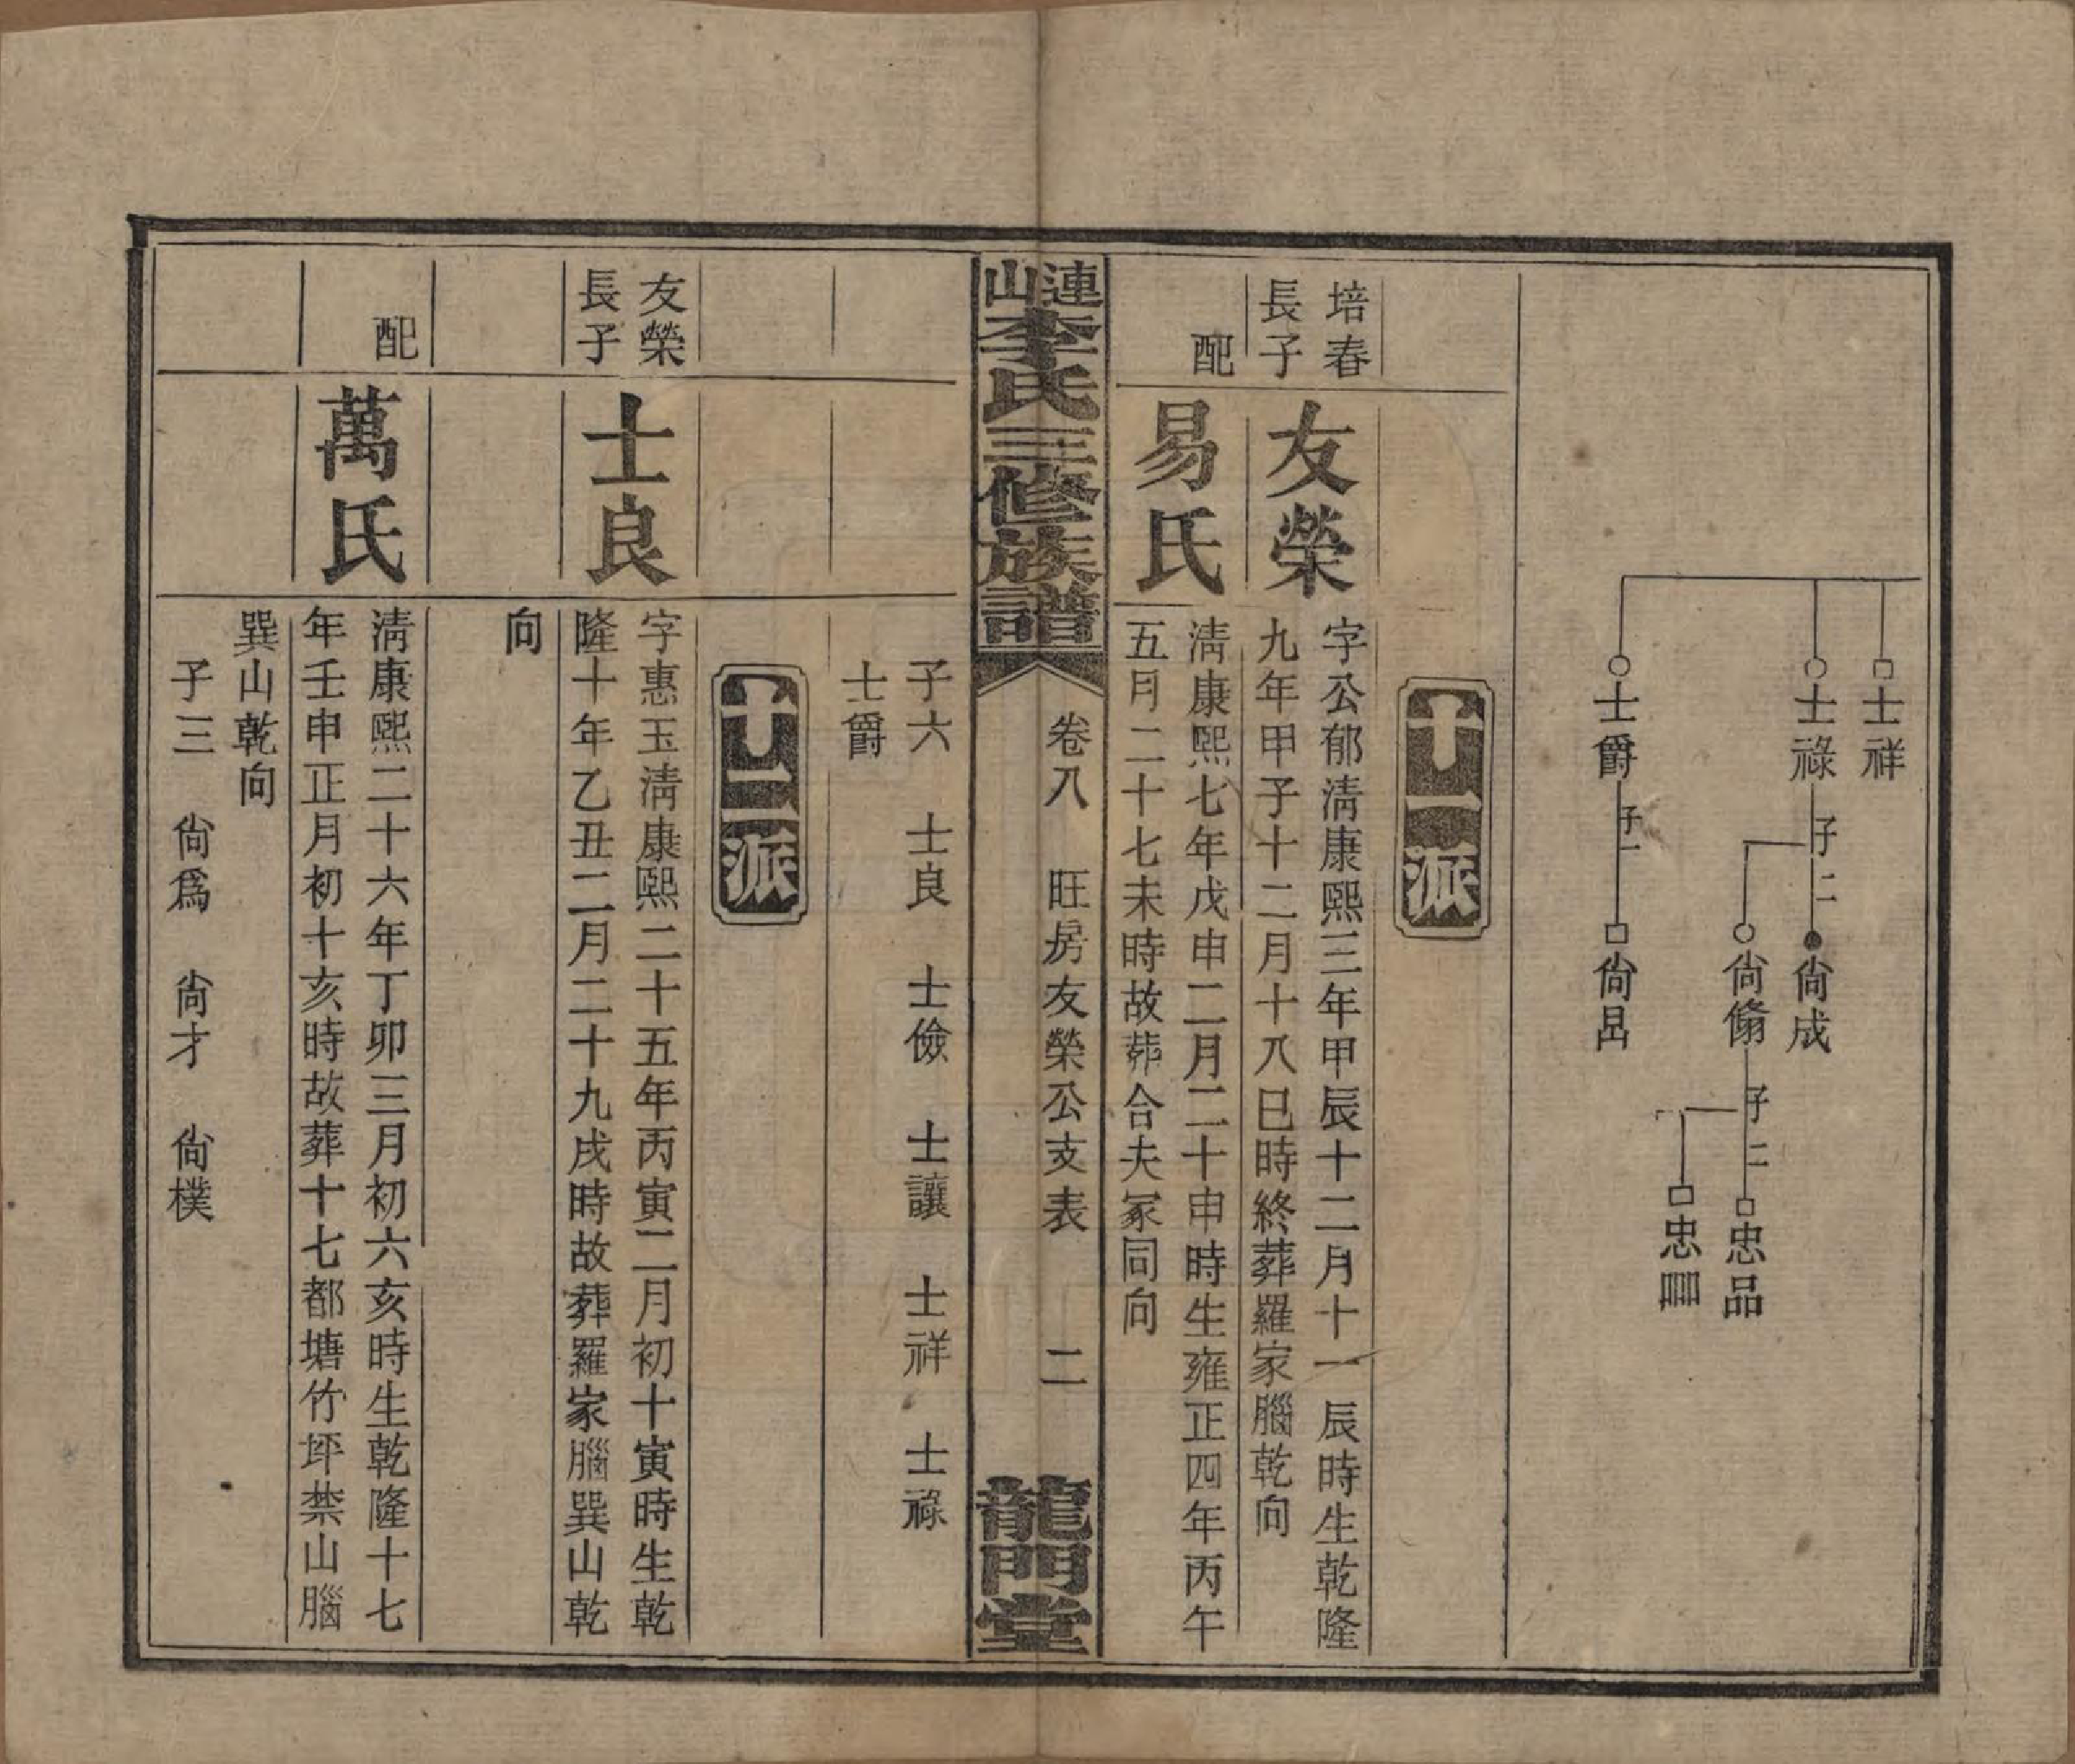 士祥
士祿
子二
尙成
尙翛
子二
忠品
忠
士爵
子一
尙昌
十一派
培春長子
友榮
字公郁淸康熙三年甲辰十二月十一辰時生乾隆
九年甲子十二月十八巳時終葬羅家腦乾向
配
易氏
淸康熙七年戊申二月二十申時生雍正四年丙午
五月二十七未時故葬合夫冢同向
連山李氏三修族譜
卷八
旺房友榮公支表
二
龍門堂
子六 士良 士儉 士讓 士祥 士祿
士爵
十二派
友榮長子
士良
字惠玉淸康熙二十五年丙寅二月初十寅時生乾
隆十年乙丑二月二十九戌時故葬羅家腦巽山乾
向
配
萬氏
淸康熙二十六年丁卯三月初六亥時生乾隆十七
年壬申正月初十亥時故葬十七都塘竹坪禁山腦
巽山乾向
子三 尙爲 尙才 尙樸